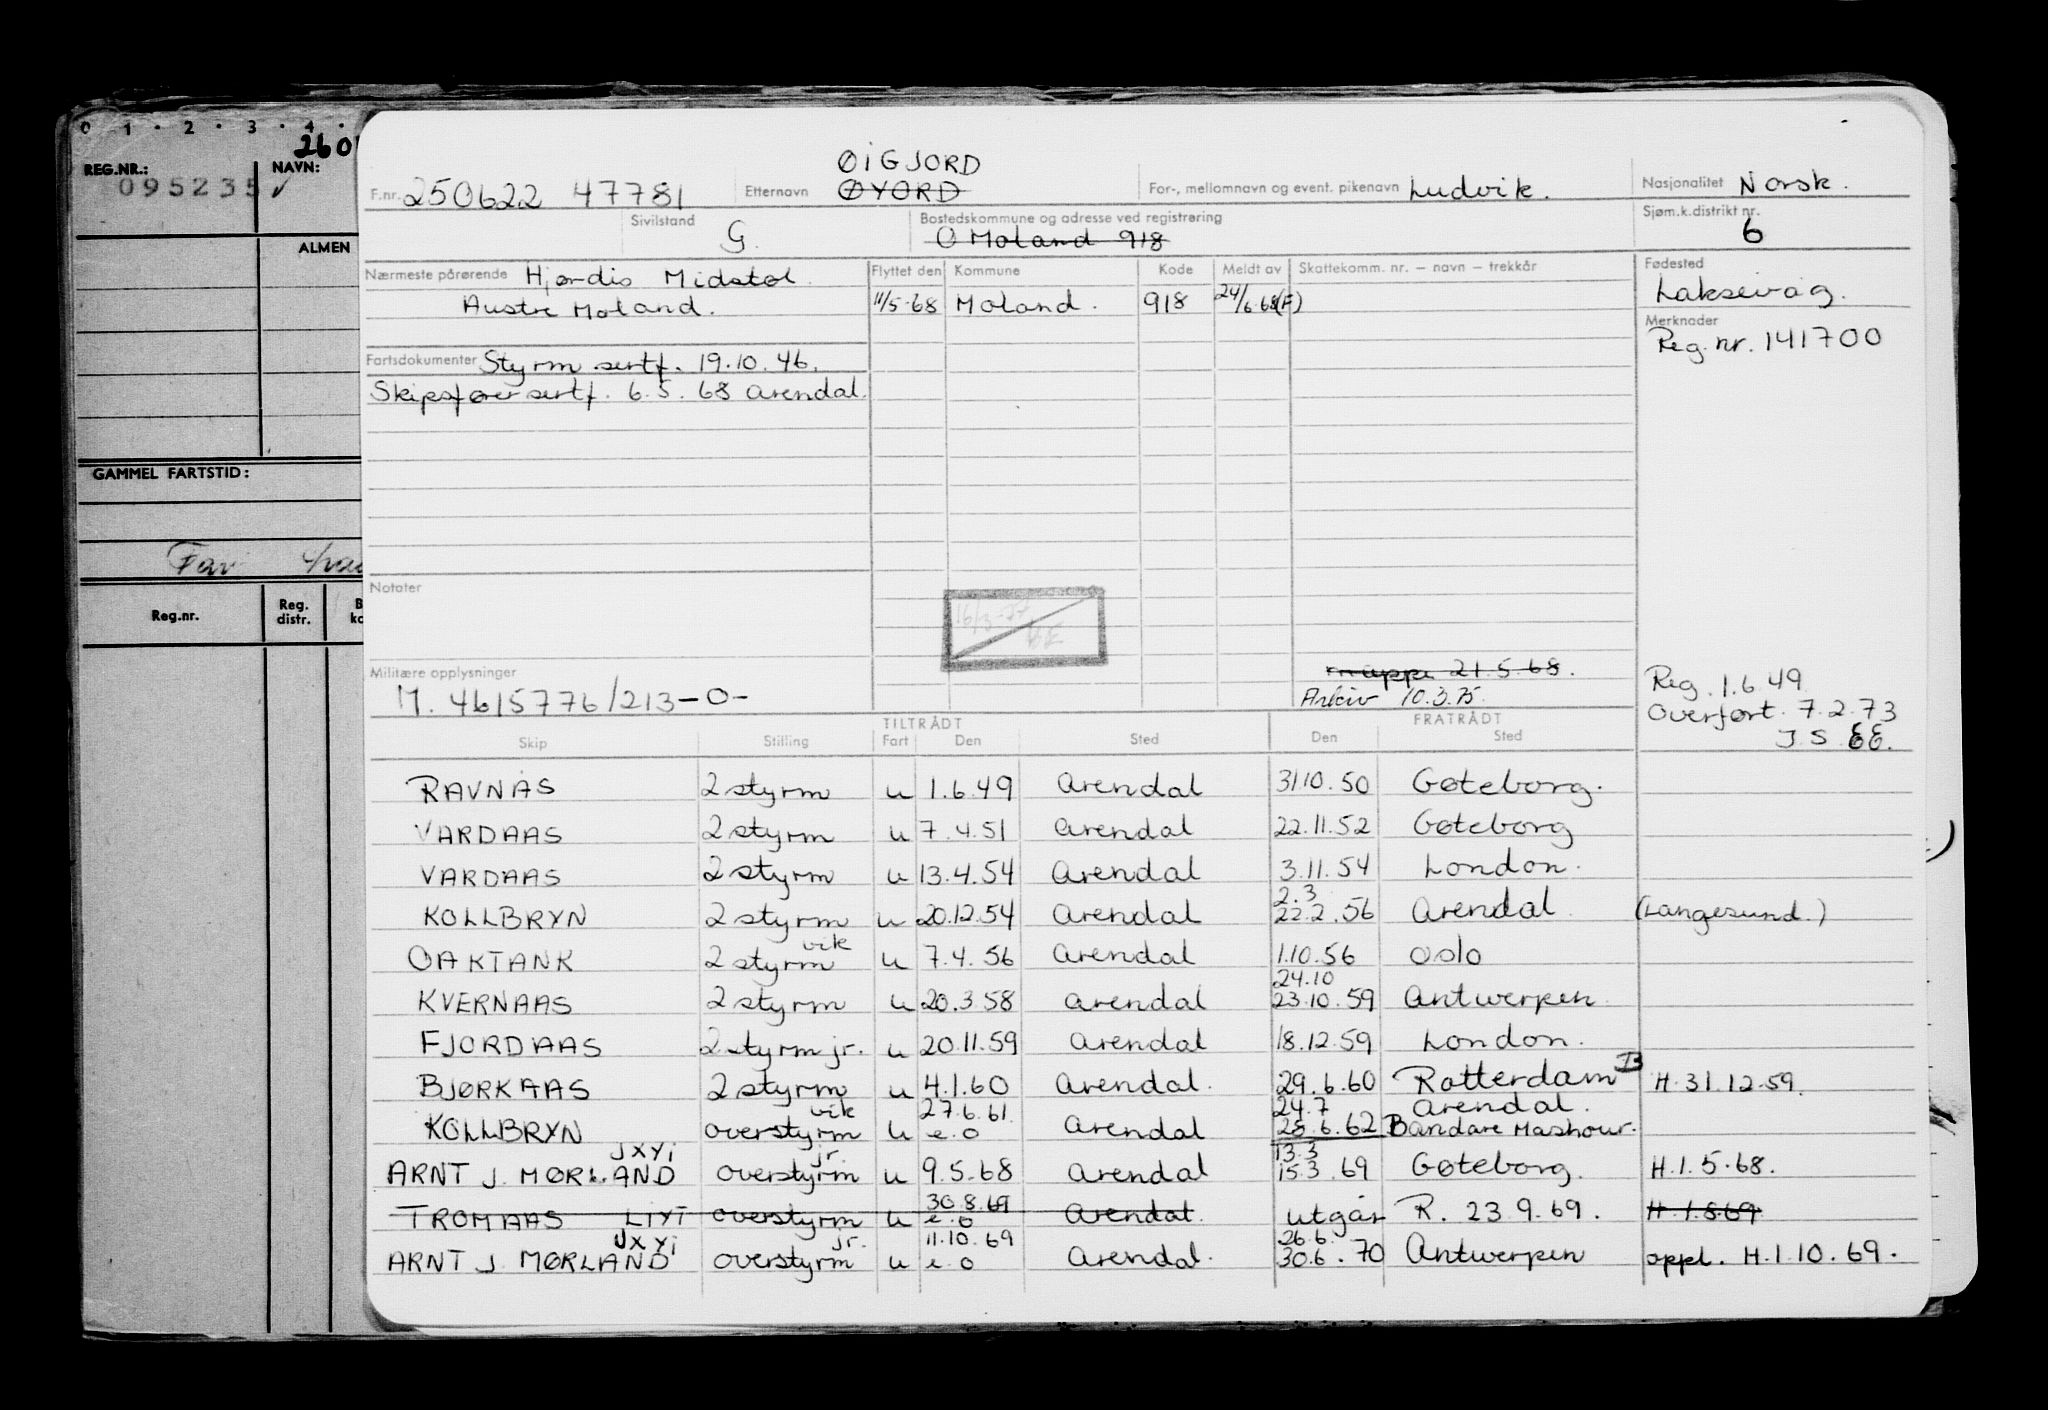 0 · 1 · 2 · 3 · 4 ·
260
REG.NR.: NAVN:
095235 ✓
ALMEN
GAMMEL FARTSTID:
Reg.nr. Reg. distr.
ØIGJORD
F.nr. 250622 47781 Etternavn ØYORD For-, mellomnavn og event. pikenavn Ludvik. Nasjonalitet Norsk.
Sivilstand G. Bostedskommune og adresse ved registrering Ø Moland 918 Sjøm.k.distrikt nr. 6
Nærmeste pårørende Hjørdis Midstøl. Flyttet den Kommune Kode Meldt av Skattekomm. nr. – navn – trekkår Fødested
Austre Moland. 11/5-68 Moland. 918 24/6.68(F) Laksevåg.
Merknader
Reg.nr. 141700
Fartsdokumenter Styrm sertf. 19.10.46.
Skipsfører sertf. 6.5.68 Arendal.
Notater
Militære opplysninger mappe 21.5.68.
M. 4615776/213-0- Arkiv 10.3.75.
Reg. 1.6.49.
Overført. 7.2.73
J.S. EE.
TILTRÅDT FRATRÅDT
Skip Stilling Fart Den Sted Den Sted
RAVNÅS 2 styrm u 1.6.49 Arendal 31.10.50 Gøteborg.
VARDAAS 2 styrm u 7.4.51 Arendal 22.11.52 Gøteborg
VARDAAS 2 styrm u 13.4.54 Arendal 3.11.54 London.
2.3
KOLLBRYN 2 styrm u 20.12.54 Arendal 22.2.56 Arendal. (Langesund.)
vik
OAKTANK 2 styrm u 7.4.56 Arendal 1.10.56 Oslo
24.10
KVERNAAS 2 styrm u 20.3.58 Arendal 23.10.59 Antwerpen.
FJORDAAS 2 styrm jr. u 20.11.59 Arendal 18.12.59 London.
BJØRKAAS 2 styrm u 4.1.60 Arendal. 29.6.60 Rotterdam B H.31.12.59.
vik 27.6.61. 24.7 Arendal.
KOLLBRYN overstyrm u e.o Arendal 25.6.62 Bandare Mashour.
JXYI jr. 13.3
ARNT J. MØRLAND overstyrm u 9.5.68 Arendal 15.3.69 Gøteborg. H.1.5.68.
30.8.69
TROMAAS LIYI overstyrm u e.o Arendal. utgår R. 23.9.69. H.1.8.69
JXYI jr. 11.10.69 26.6.
ARNT J. MØRLAND overstyrm u e.o Arendal. 30.6.70 Antwerpen oppl. H.1.10.69.